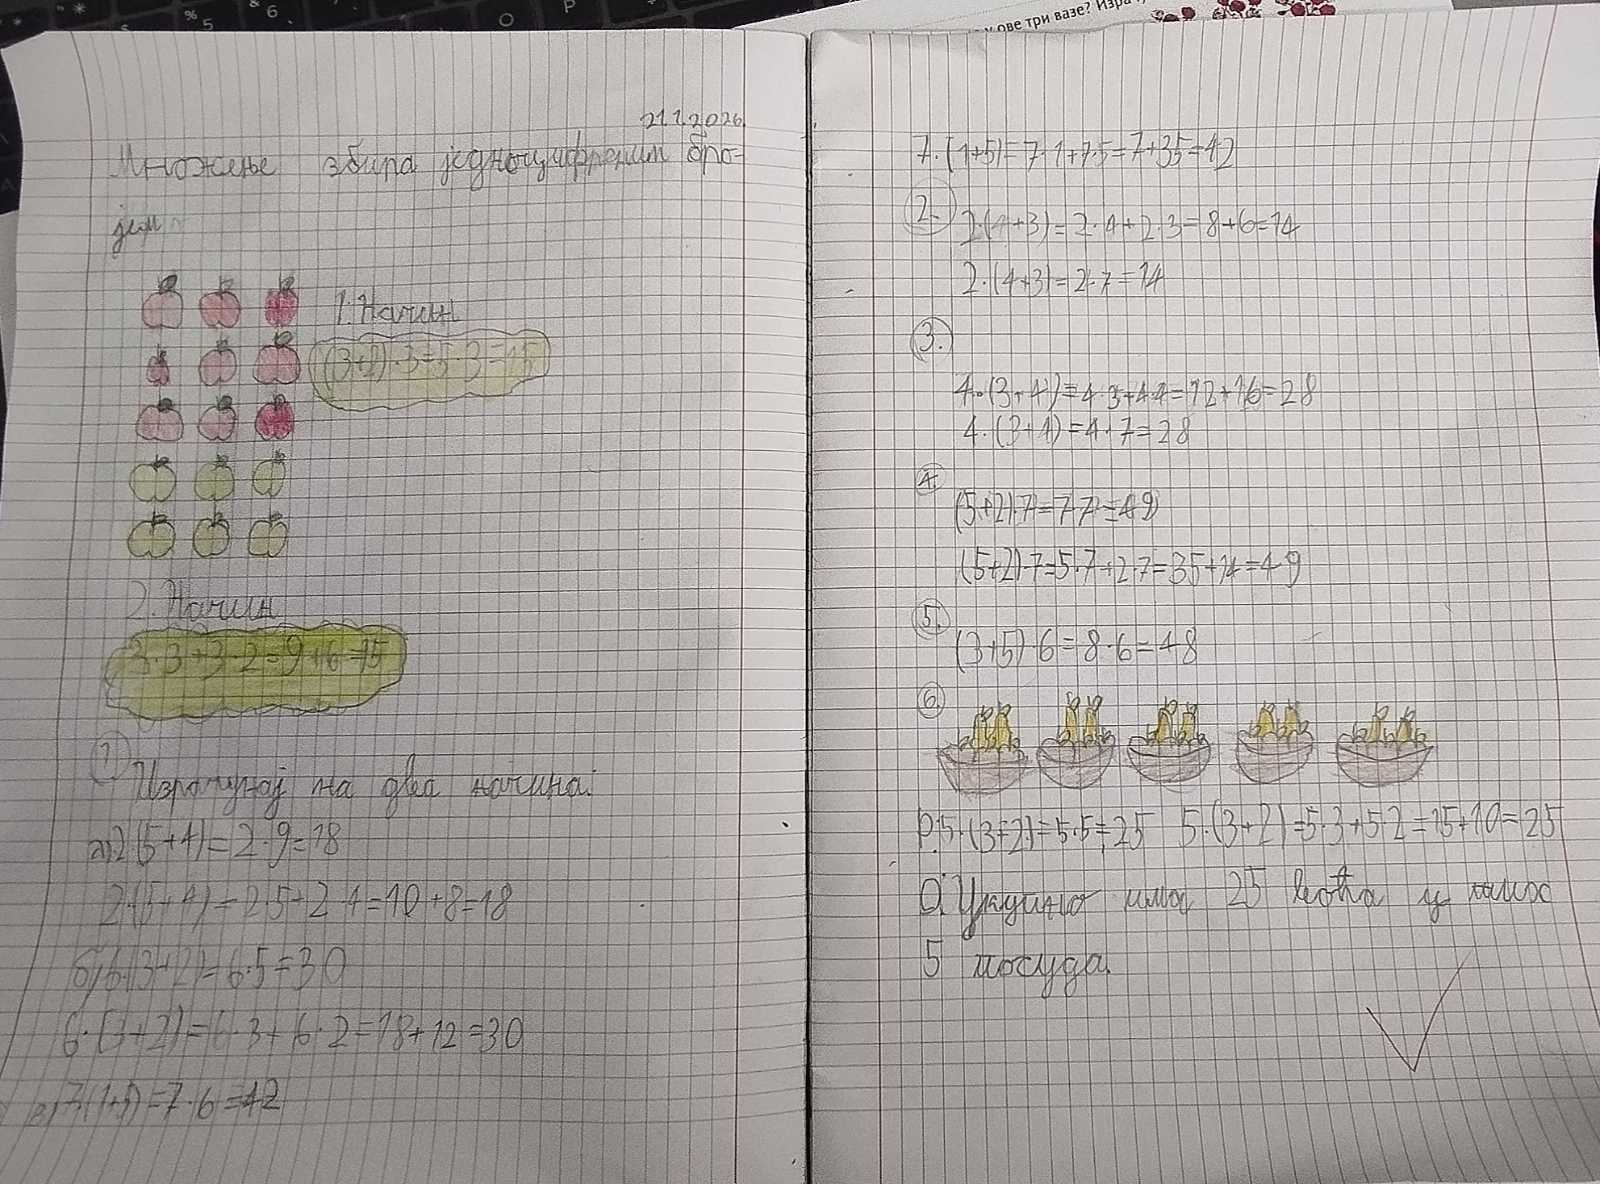 21.1.2026.
Множење збира једноцифреним бро-
јем
1. Начин
(3+2)·3=5·3=15
2. Начин
3·3+3·2=9+6=15
1. Израчунај на два начина:
а) 2·(5+4)=2·9=18
2·(5+4)=2·5+2·4=10+8=18
б) 6·(3+2)=6·5=30
6·(3+2)=6·3+6·2=18+12=30
в) 7·(1+5)=7·6=42
ове три вазе?
7·(1+5)=7·1+7·5=7+35=42
2. 2·(4+3)=2·4+2·3=8+6=14
2·(4+3)=2·7=14
3.
4·(3+4)=4·3+4·4=12+16=28
4·(3+4)=4·7=28
4.
(5+2)·7=7·7=49
(5+2)·7=5·7+2·7=35+14=49
5.
(3+5)·6=8·6=48
6.
Р: 5·(3+2)=5·5=25 5·(3+2)=5·3+5·2=15+10=25
О: Укупно има 25 воћа у
5 посуда.